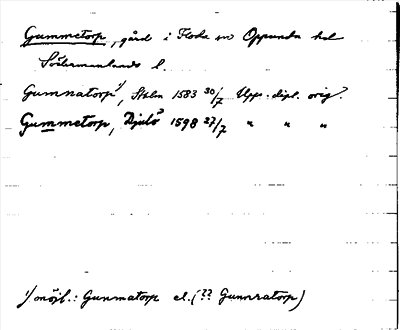 Gummetorp, gård i Floda sn Oppunda hd
Södermanlands l.
Gumnatorp 1), Sthlm 1583 30/7 Upps. dipl. orig.
Gummetorp, Djulö 1598 27/7 " " "
1) möjl.: Gunmatorp el. (?? Gunnratorp)